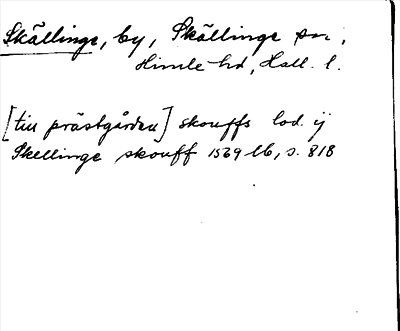 Skällinge, by, Skällinge sn,
Himle hd, Hall. l.
[till prästgården] skouffs lod ij
Skellinge skouff 1569 lb, s. 818